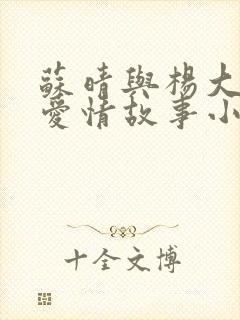 蘇晴與楊大
愛情故事小
十全文博